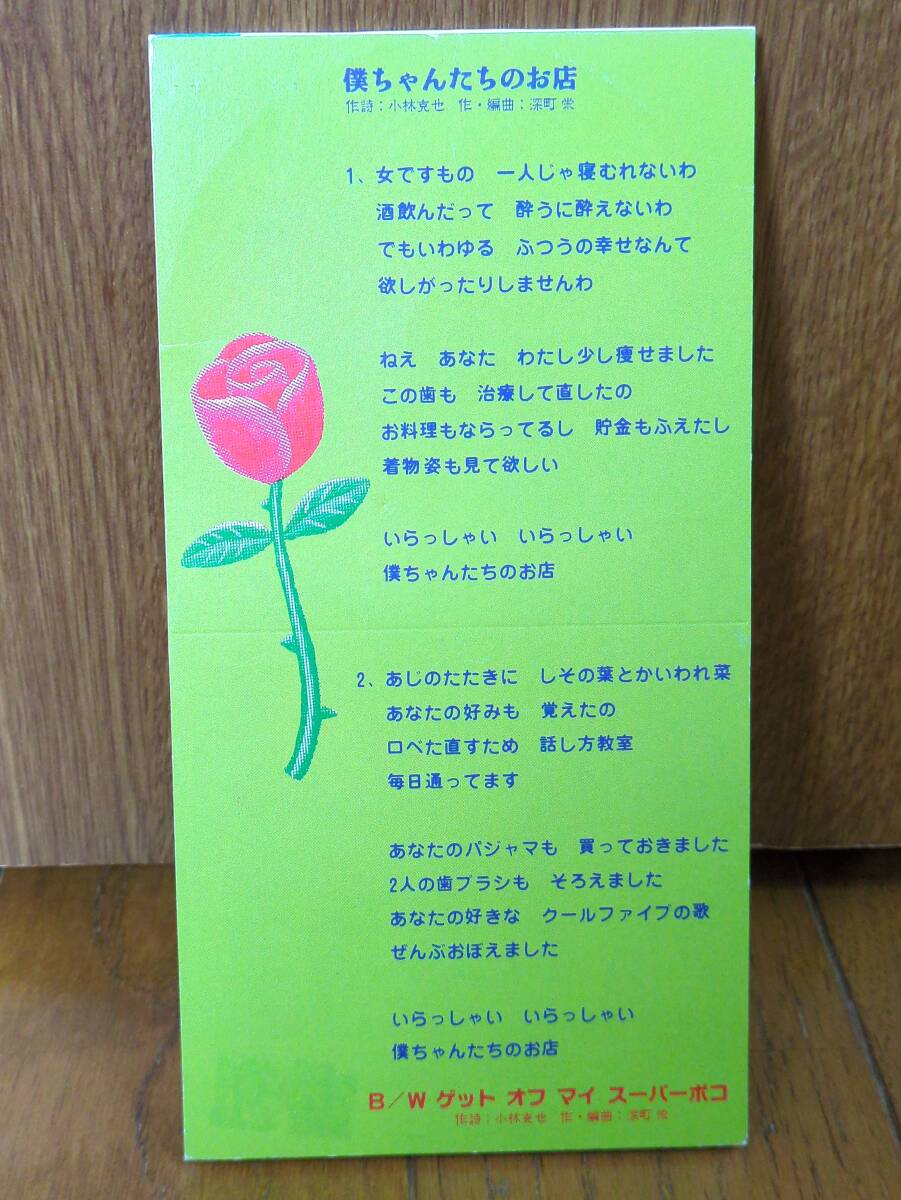 僕ちゃんたちのお店
作詩：小林克也　作・編曲：深町 栄
1、女ですもの　一人じゃ寝むれないわ
酒飲んだって　酔うに酔えないわ
でもいわゆる　ふつうの幸せなんて
欲しがったりしませんわ
ねえ　あなた　わたし少し痩せました
この歯も　治療して直したの
お料理もならってるし　貯金もふえたし
着物姿も見て欲しい
いらっしゃい　いらっしゃい
僕ちゃんたちのお店
2、あじのたたきに　しその葉とかいわれ菜
あなたの好みも　覚えたの
口べた直すため　話し方教室
毎日通ってます
あなたのパジャマも　買っておきました
2人の歯ブラシも　そろえました
あなたの好きな　クールファイブの歌
ぜんぶおぼえました
いらっしゃい　いらっしゃい
僕ちゃんたちのお店
B／W ゲット オフ マイ スーパーポコ
作詩：小林克也　作・編曲：深町 栄